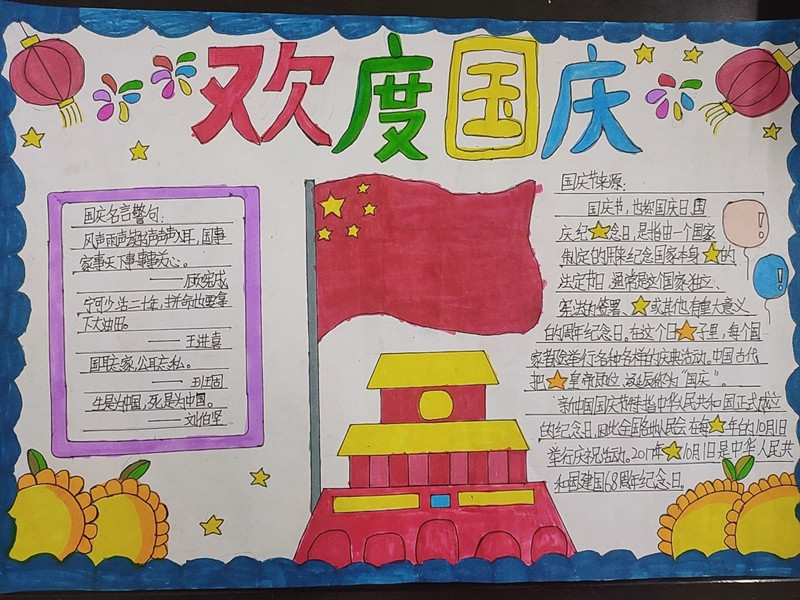 欢度国庆
国庆名言警句:
风声雨声读书声声声入耳,国事
家事天下事事事关心。
——顾宪成
宁可少活二十年,拼命也要拿
下大油田。
——王进喜
国耳忘家,公耳忘私。
——班固
生是为中国,死是为中国。
——刘伯坚
国庆节来源:
国庆节,也称国庆日国
庆纪念日,是指由一个国家
制定的用来纪念国家本身的
法定节日。通常是这个国家独立、
宪法的签署、或其他有重大意义
的周年纪念日。在这个日子里,每个国
家都院举行各种各样的庆典活动。中国古代
把皇帝即位、称为“国庆”。
新中国国庆节特指中华人民共和国正式成立
的纪念日。因此全国各地人民会在每年的10月1日
举行庆祝活动。2017年10月1日是中华人民共
和国建国68周年纪念日。
!
!